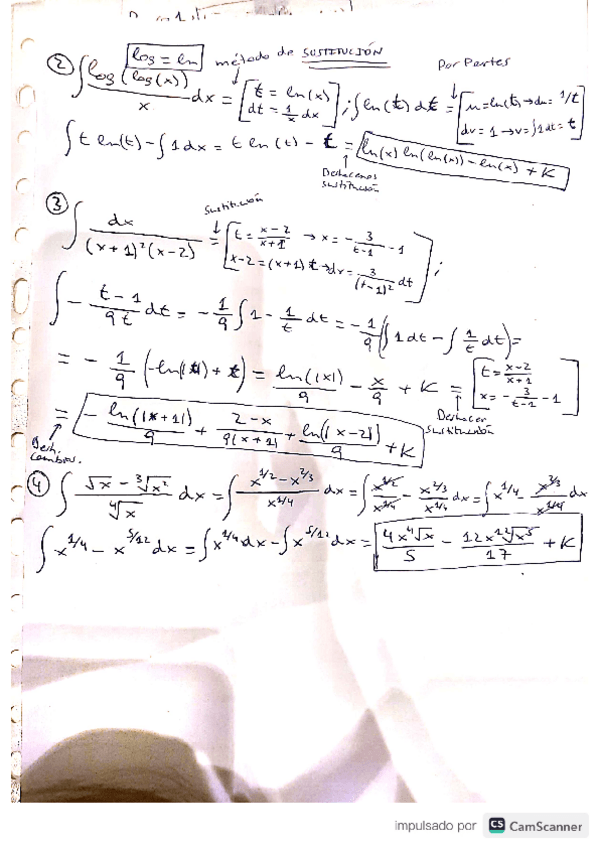 log = ln
método de SUSTITUCIÓN
Por Partes
② ∫ log(log(x))/x dx = [t = ln(x) ; dt = 1/x dx] ; ∫ ln(t) dt = [u = ln(t) → du = 1/t ; dv = 1 → v = ∫1dt = t]
∫ t ln(t) - ∫ 1 dx = t ln(t) - t = ln(x) ln(ln(x)) - ln(x) + K
Deshacemos
sustitución
Sustitución
③ ∫ dx/((x+1)²(x-2)) = [t = (x-2)/(x+1) → x = -3/(t-1) - 1 ; x-2 = (x+1)t → dx = 3/(t-1)² dt] ;
∫ - (t-1)/(9t) dt = -1/9 ∫ 1 - 1/t dt = -1/9 (∫ 1 dt - ∫ 1/t dt) =
= - 1/9 (-ln(|t|) + t) = ln(|x|)/9 - x/9 + K = [t = (x-2)/(x+1) ; x = -3/(t-1) - 1]
Deshacer
sustitución
= - ln(|x+1|)/9 + (2-x)/(9(x+1)) + ln(|x-2|)/9 + K
Desh.
cambios.
④ ∫ (√x - ∛x²)/∜x dx = ∫ (x^1/2 - x^2/3)/x^1/4 dx = ∫ x^1/2/x^1/4 - x^2/3/x^1/4 dx = ∫ x^1/4 - x^2/3/x^1/4 dx
∫ x^1/4 - x^5/12 dx = ∫ x^1/4 dx - ∫ x^5/12 dx = 4x∜x/5 - 12x ¹²√x⁵/17 + K
impulsado por CS CamScanner